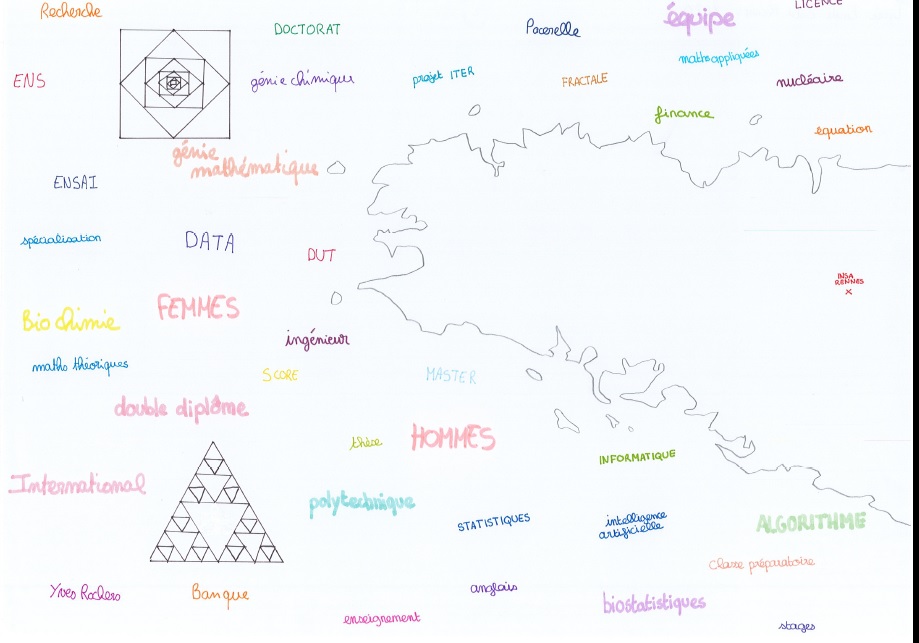 Recherche
DOCTORAT
Pacerelle
équipe
LICENCE
ENS
génie chimique
projet ITER
FRACTALE
maths appliquées
nucléaire
finance
équation
génie
mathématique
ENSAI
spécialisation
DATA
DUT
INSA
RENNES
x
FEMMES
Bio chimie
ingénieur
maths théoriques
SCORE
MASTER
double diplôme
thèse
HOMMES
INFORMATIQUE
International
polytechnique
STATISTIQUES
intelligence
artificielle
ALGORITHME
Classe préparatoire
Yves Rochers
Banque
anglais
biostatistiques
enseignement
stages